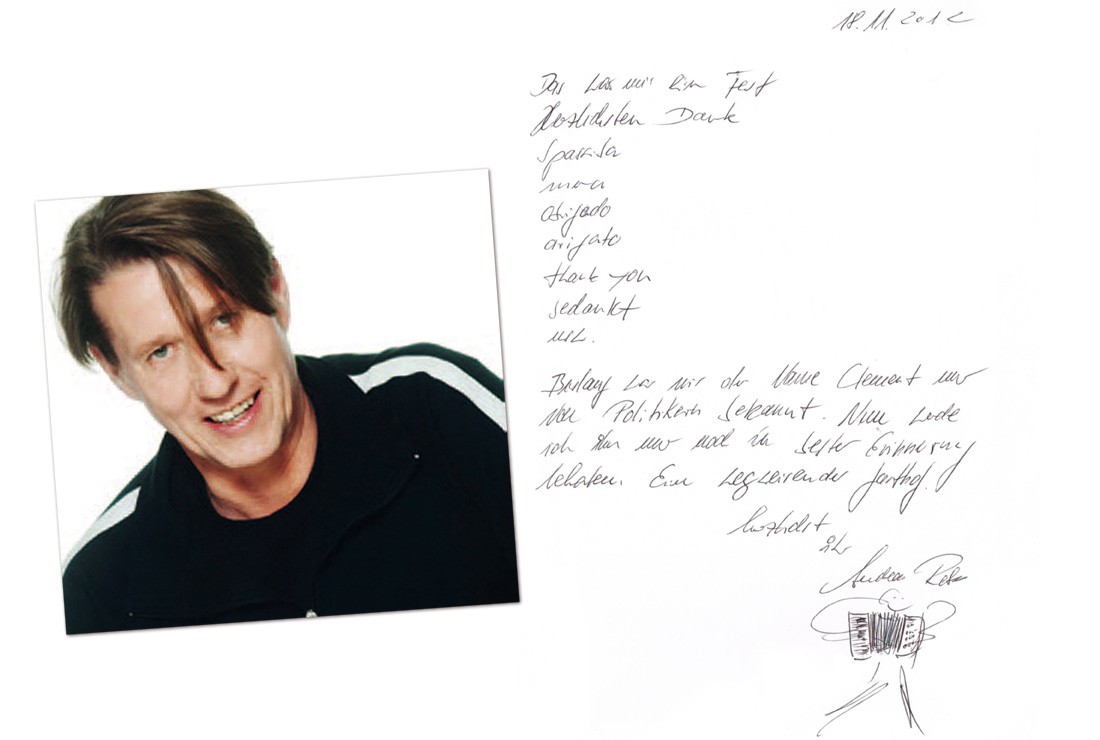 18.11.2012
Das war mir ein Fest
Herzlichsten Dank
Spassiba
merci
obrigado
arigato
thank you
bedankt
usw.
Bislang war mir der Name Clement nur
von Politikern bekannt. Nun werde
ich ihn nur noch in bester Erinnerung
behalten. Ein wegweisender Gasthof.
herzlichst
Ihr
Andreas